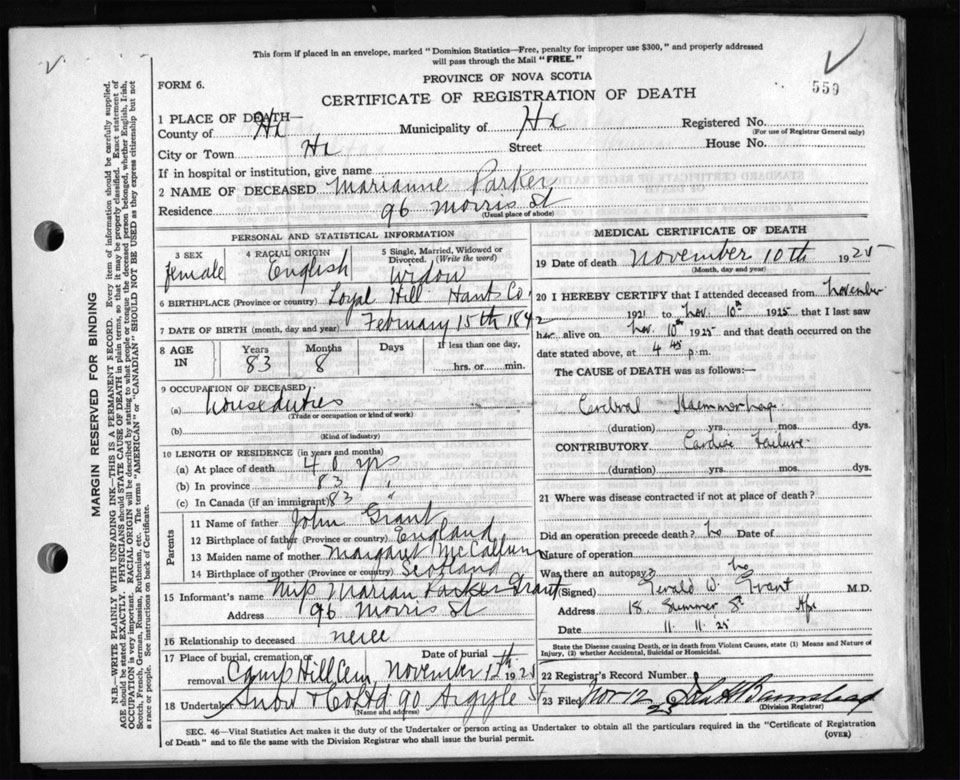 This form if placed in an envelope, marked "Dominion Statistics—Free, penalty for improper use $300," and properly addressed
will pass through the Mail "FREE."
PROVINCE OF NOVA SCOTIA
559
FORM 6.
CERTIFICATE OF REGISTRATION OF DEATH
1 PLACE OF DEATH—
County of Hx Municipality of Hx Registered No.
(For use of Registrar General only)
City or Town Hx Street House No.
If in hospital or institution, give name
2 NAME OF DECEASED Marianne Parker
Residence 96 Morris St
(Usual place of abode)
PERSONAL AND STATISTICAL INFORMATION
3 SEX 4 RACIAL ORIGIN 5 Single, Married, Widowed or
Divorced. (Write the word)
female English Widow
6 BIRTHPLACE (Province or country) Loyal Hill Hants Co.
7 DATE OF BIRTH (month, day and year) February 15th 1842
8 AGE IN Years Months Days If less than one day,
83 8 hrs. or min.
9 OCCUPATION OF DECEASED:
(a) house duties
(Trade or occupation or kind of work)
(b)
(Kind of industry)
10 LENGTH OF RESIDENCE (in years and months)
(a) At place of death 40 yrs
(b) In province 83 "
(c) In Canada (if an immigrant) 83 "
Parents
11 Name of father John Grant
12 Birthplace of father (Province or country) England
13 Maiden name of mother Margaret McCallum
14 Birthplace of mother (Province or country) Scotland
15 Informant's name Miss Marian Parker Grant
Address 96 Morris St
16 Relationship to deceased neice
17 Place of burial, cremation or Date of burial
removal Camp Hill Cem, November 12th 1925
18 Undertaker Snow & Co Ltd 90 Argyle St
(Name and address)
MEDICAL CERTIFICATE OF DEATH
19 Date of death November 10th 1925
(Month, day and year)
20 I HEREBY CERTIFY that I attended deceased from November
1921 to Nov. 10th 1925 that I last saw
her alive on Nov. 10th 1925 and that death occurred on the
date stated above, at 4 45 p.m.
The CAUSE of DEATH was as follows:—
Cerebral Haemmorhage
(duration) yrs. mos. dys.
CONTRIBUTORY Cardiac Failure
(duration) yrs. mos. dys.
21 Where was disease contracted if not at place of death?
Did an operation precede death? no Date of
Nature of operation
Was there an autopsy? no
(Signed) Gerald W. Grant M.D.
Address 18 Summer St Hfx
Date 11.11.25
State the Disease causing Death, or in death from Violent Causes, state (1) Means and Nature of
Injury, (2) whether Accidental, Suicidal or Homicidal.
22 Registrar's Record Number
23 Filed Nov 12 25 John H Barnstead
(Division Registrar)
SEC. 46—Vital Statistics Act makes it the duty of the Undertaker or person acting as Undertaker to obtain all the particulars required in the "Certificate of Registration
of Death" and to file the same with the Division Registrar who shall issue the burial permit. (OVER)
MARGIN RESERVED FOR BINDING
N.B.—WRITE PLAINLY WITH UNFADING INK—THIS IS A PERMANENT RECORD. Every item of information should be carefully supplied.
AGE should be stated EXACTLY. PHYSICIANS should STATE CAUSE OF DEATH in plain terms, so that it may be properly classified. Exact statement of
OCCUPATION is very important. RACIAL ORIGIN will be described by stating to what people or tongue the deceased person belonged, whether English, Irish,
Scotch, French, German, Russian, Ruthenian, etc. The terms "AMERICAN" or "CANADIAN" SHOULD NOT BE USED as they express citizenship but not
a race or people. See instructions on back of Certificate.